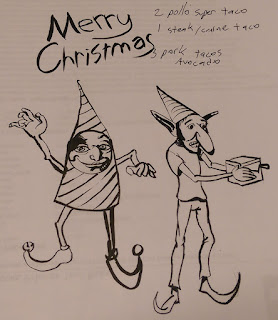 Merry
Christmas
2 pollo super taco
1 steak/carne taco
3 pork tacos
Avocado